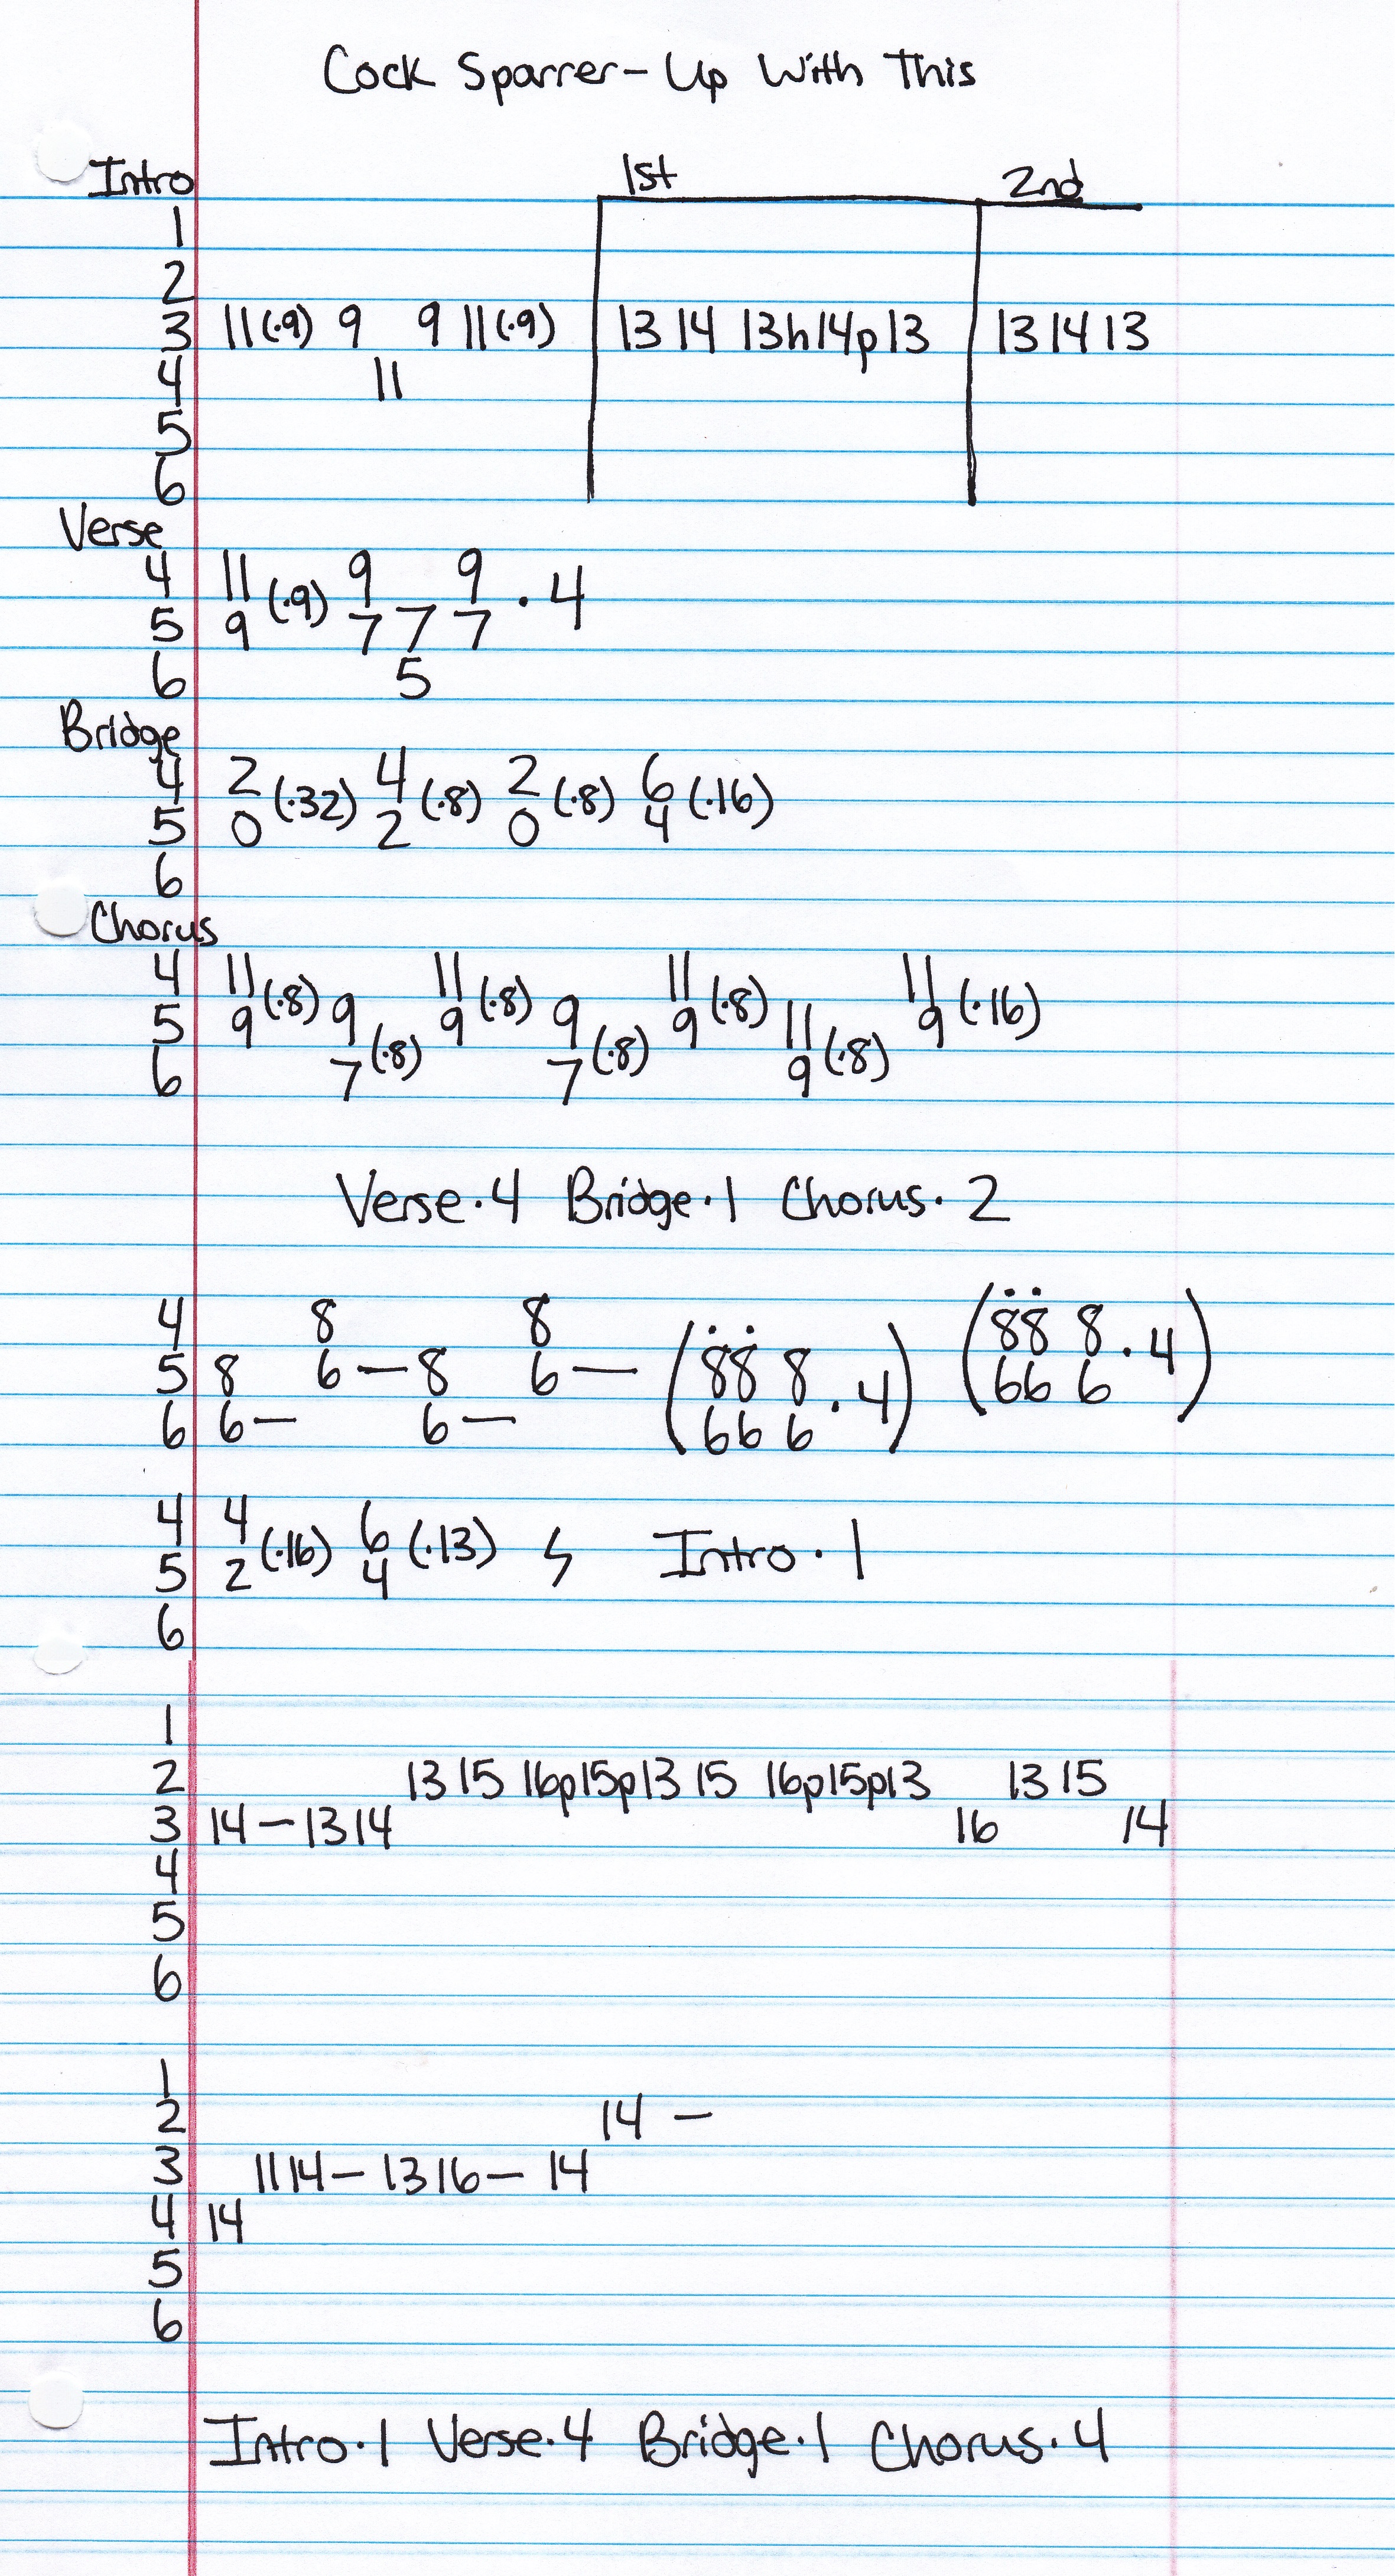 Cock Sparrer - Up With This
Intro 1st 2nd
1
2
3 11(·9) 9 9 11(·9) 13 14 13h14p13 13 14 13
4 11
5
6
Verse
4 11 9 9
5 9 (·9) 7 7 7 · 4
6 5
Bridge
4 2 4 2 6
5 0 (·32) 2 (·8) 0 (·8) 4 (·16)
6
Chorus
4 11 11 11 11
5 9 (·8) 9 9 (·8) 9 9 (·8) 11 9 (·16)
6 7 (·8) 7 (·8) 9 (·8)
Verse·4 Bridge·1 Chorus·2
4 8 8 (88 8 · 4)
5 8 6 — 8 6 — (88 8 · 4) 66 6
6 6 — 6 — 66 6
4 4 6
5 2 (·16) 4 (·13) Intro·1
6
1
2 13 15 16p15p13 15 16p15p13 13 15
3 14 — 13 14 16 14
4
5
6
1
2 14 —
3 11 14 — 13 16 — 14
4 14
5
6
Intro·1 Verse·4 Bridge·1 Chorus·4